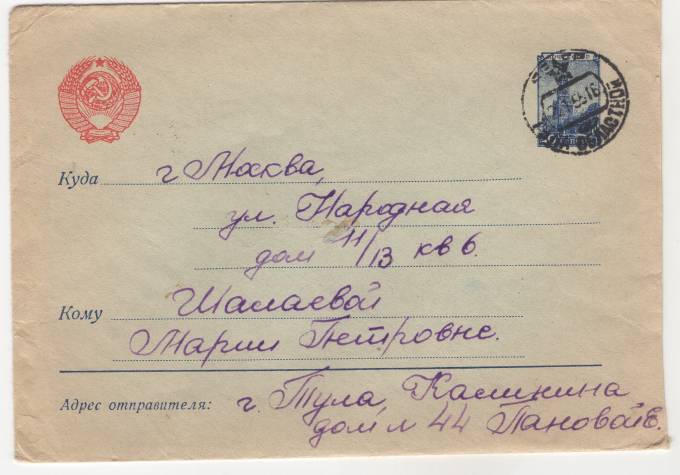 Куда г Москва,
ул. Народная
дом 11/13 кв 6.
Кому Шалаевой
Марии Петровне.
Адрес отправителя: г. Тула, Калинина
дом № 44 Пановой Е.